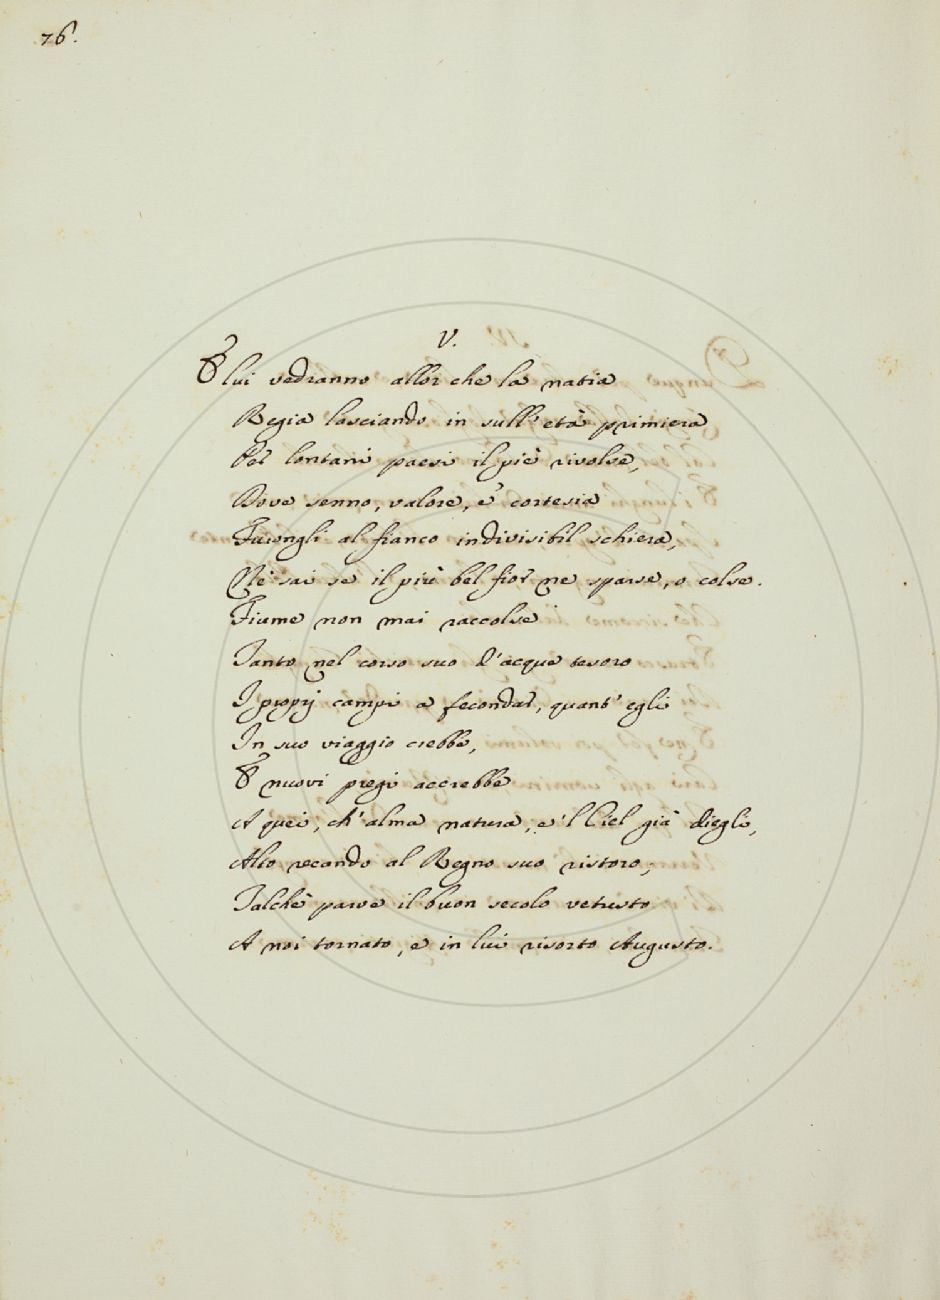 76.
V.
E lui vedranno allor che la natia
Regia lasciando in sull' età primiera
Per lontani paesi il piè rivolse,
Dove senno, valore, e cortesia
Furongli al fianco indivisibil schiera,
Nè sai se il più bel fior ne sparse, o colse.
Fiume non mai raccolse
Tanto nel corso suo d'acque tesoro
I proprj campi a fecondar, quant' egli
In suo viaggio crebbe,
E nuovi pregi accrebbe
A quei, ch' alma natura, e 'l Ciel già diegli,
Alto recando al Regno suo ristoro;
Talchè parve il buon secolo vetusto
A noi tornato, e in lui risorto Augusto.